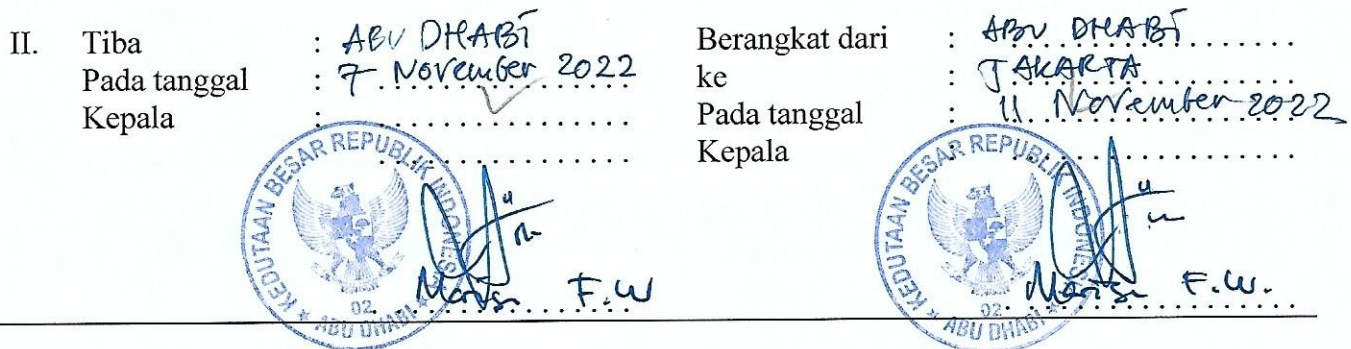 II. Tiba : ABU DHABI
Pada tanggal : 7 November 2022
Kepala :
KEDUTAAN BESAR REPUBLIK INDONESIA
02.
* ABU DHABI *
F.W
Berangkat dari : ABU DHABI
ke : JAKARTA
Pada tanggal : 11 November 2022
Kepala
KEDUTAAN BESAR REPUBLIK INDONESIA
02.
* ABU DHABI *
F.W.